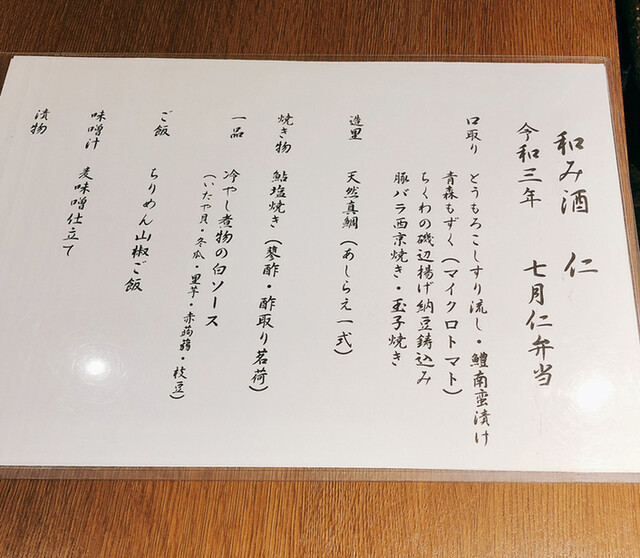 和み酒 仁
令和三年 七月仁弁当
口取り とうもろこしすり流し・鱧南蛮漬け
青森もずく(マイクロトマト)
ちくわの磯辺揚げ納豆鋳込み
豚バラ西京焼き・玉子焼き
造里 天然真鯛(あしらえ一式)
焼き物 鮎塩焼き(蓼酢・酢取り茗荷)
一品 冷やし煮物の白ソース
(いたや貝・冬瓜・里芋・赤蒟蒻・枝豆)
ご飯 ちりめん山椒ご飯
味噌汁 麦味噌仕立て
漬物